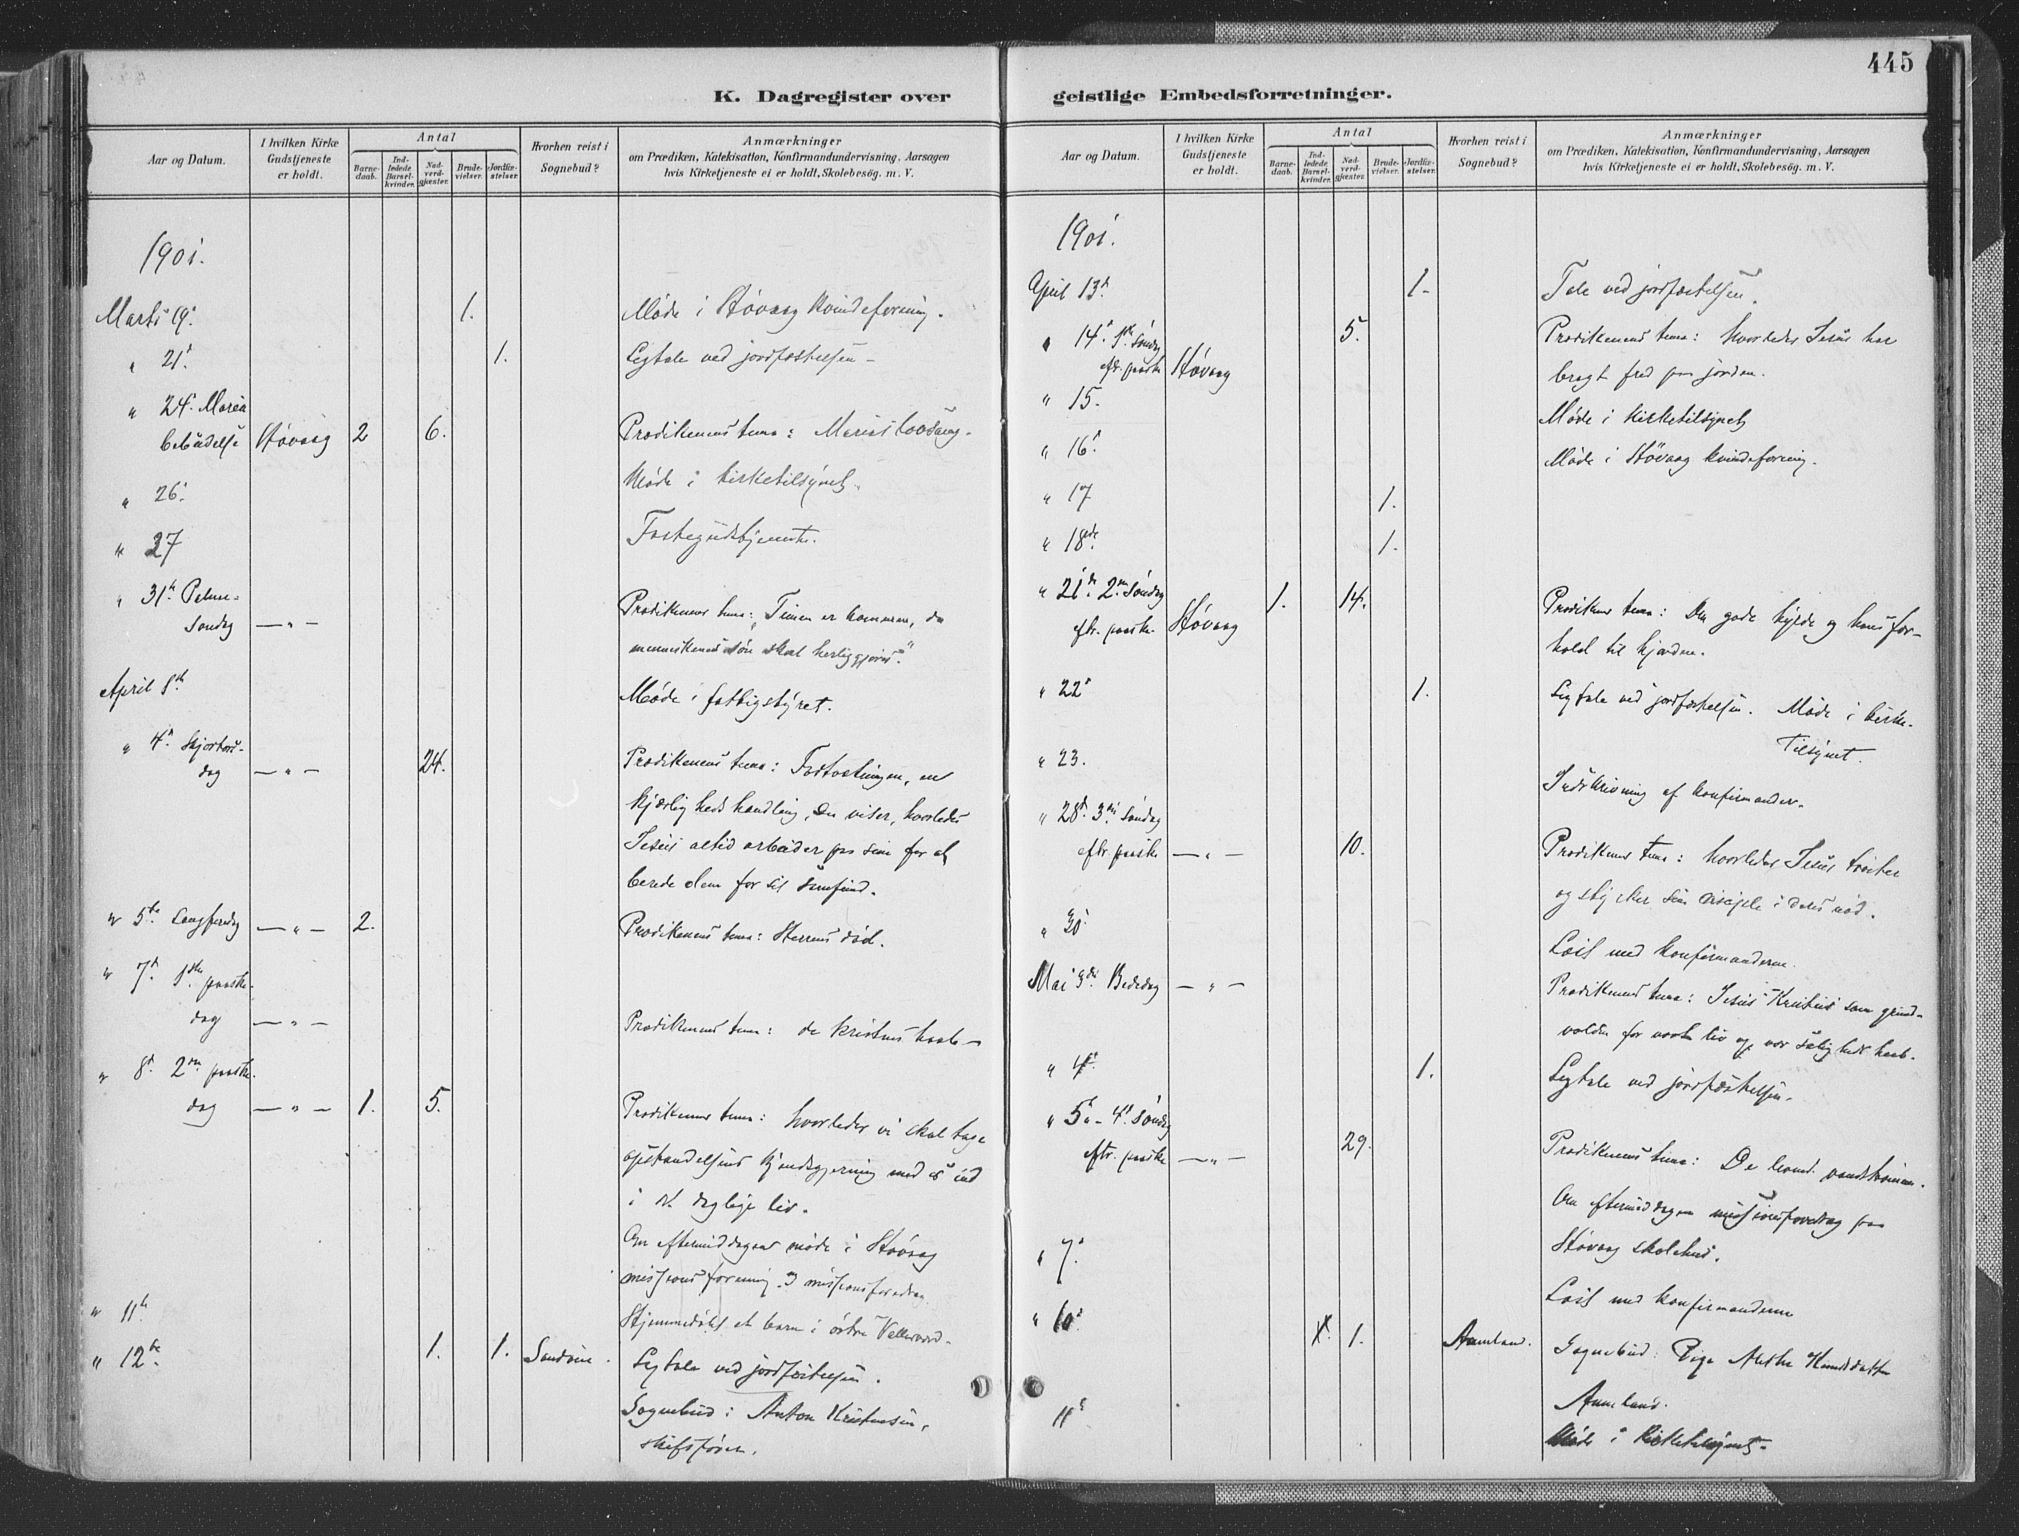 445
K. Dagregister over
geistlige Embedsforretninger.
Aar og Datum.
I hvilken Kirke Gudstjeneste er holdt.
Antal
Barne-daab.
Ind-ledede Barsel-kvinder.
Nad-verd-gjester.
Brude-vielser.
Jordfæ-stelser.
Hvorhen reist i Sognebud?
Anmærkninger
om Prædiken, Katekisation, Konfirmandundervisning, Aarsagen
hvis Kirketjeneste ei er holdt, Skolebesög. m. V.
1901.
Marts 19. 1. Møde i Høvaag kvindeforening.
" 21. 1. Ligtale ved jordfæstelsen
" 24. Maria
bebudelse Høvaag 2 6. Prædikenens tema: Marias lovsang.
Møde i kirketilsynet.
" 26.
" 27 Fastegudstjeneste.
" 31te Palme-
søndag — " — Prædikenens tema: "Timen er kommen, da
menneskenes søn skal herliggjøres."
April Møde i fattigstyret.
" 4. Skjærtors-
dag — " — 24. Prædikenens tema: Fodvaskningen, en
kjærlighedshandling, der viser, hvorledes
Jesus altid arbeider paa sine for at
berede dem for sit samfund.
" 5te Langfredag — " — 2. Prædikenens tema: Herrens død.
" 7. 1ste paaske-
dag — " — Prædikenens tema: de kristnes haab
" 8. 2den paaske-
dag — " — 1. 5. Prædikenens tema: hvorledes vi skal tage
opstandelsens kjendsgjerning med os ind
i det daglige liv.
Om eftermiddagen møde i Høvaag
missionsforening. missionsforedrag.
" 11te Hjemmedøbt et barn i østre
" 12te 1. 1. Sandvine. Ligtale ved jordfæstelsen.
Sognebud: Anton Kristensen,
skibsfører.
Aar og Datum.
I hvilken Kirke Gudstjeneste er holdt.
Antal
Barne-daab.
Ind-ledede Barsel-kvinder.
Nad-verd-gjester.
Brude-vielser.
Jordfæ-stelser.
Hvorhen reist i Sognebud?
Anmærkninger
om Prædiken, Katekisation, Konfirmandundervisning, Aarsagen
hvis Kirketjeneste ei er holdt, Skolebesög. m. V.
1901.
April 13. 1. Tale ved jordfæstelsen.
" 14. 1ste søndag 5. Prædikenens tema: hvorledes Jesus har
eft. paaske Høvaag bragt fred paa jorden.
" 15. Møde i kirketilsynet
" 16. Møde i Høvaag kvindeforening.
" 17 1.
" 18de 1.
" 21de 2den søndag 1. 14. Prædikenens tema: Den gode hyrde og hans for-
eftr. paaske. Høvaag hold til hjorden.
" 22 1. Ligtale ved jordfæstelsen. Møde i kirke-
tilsynet.
" 23. Indskrivning af konfirmander.
" 28. 3die søndag
eftr. paaske — " — 10. Prædikenens tema: hvorledes Jesus trøster
og styrker sine disciple i deres nød.
" 30 Læst med konfirmanderne.
Mai 3die Bededag — " — Prædikenens tema: Jesus Kristus som grund-
volden for vort liv og vor salighets haab.
" 4. 1. Ligtale ved jordfæstelsen.
" 5. 4. søndag
eftr. paaske — " — 29. Prædikenens tema: De levende vandstrømme.
Om eftermiddagen missionsforedrag paa
Høvaag skolehus.
" 7. Læst med konfirmanderne
" 10. 1. Aamland. Sognebud: Pige Knudsdatter
Aamland.
" 11 Møde i kirketilsynet.